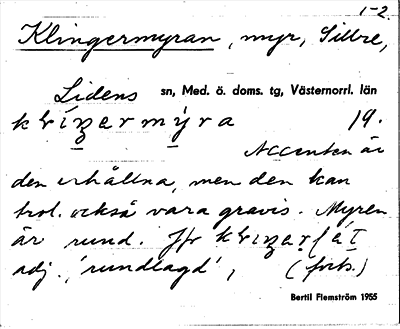 1-2.
Klingermyran, myr, Sillre,
Lidens sn, Med. ö. doms. tg, Västernorrl. län
19.
Accenten är
den erhållna, men den kan
trol. också vara gravis. Myren
är rund. Jfr
adj. 'rundlagd', (forts.)
Bertil Flemström 1955